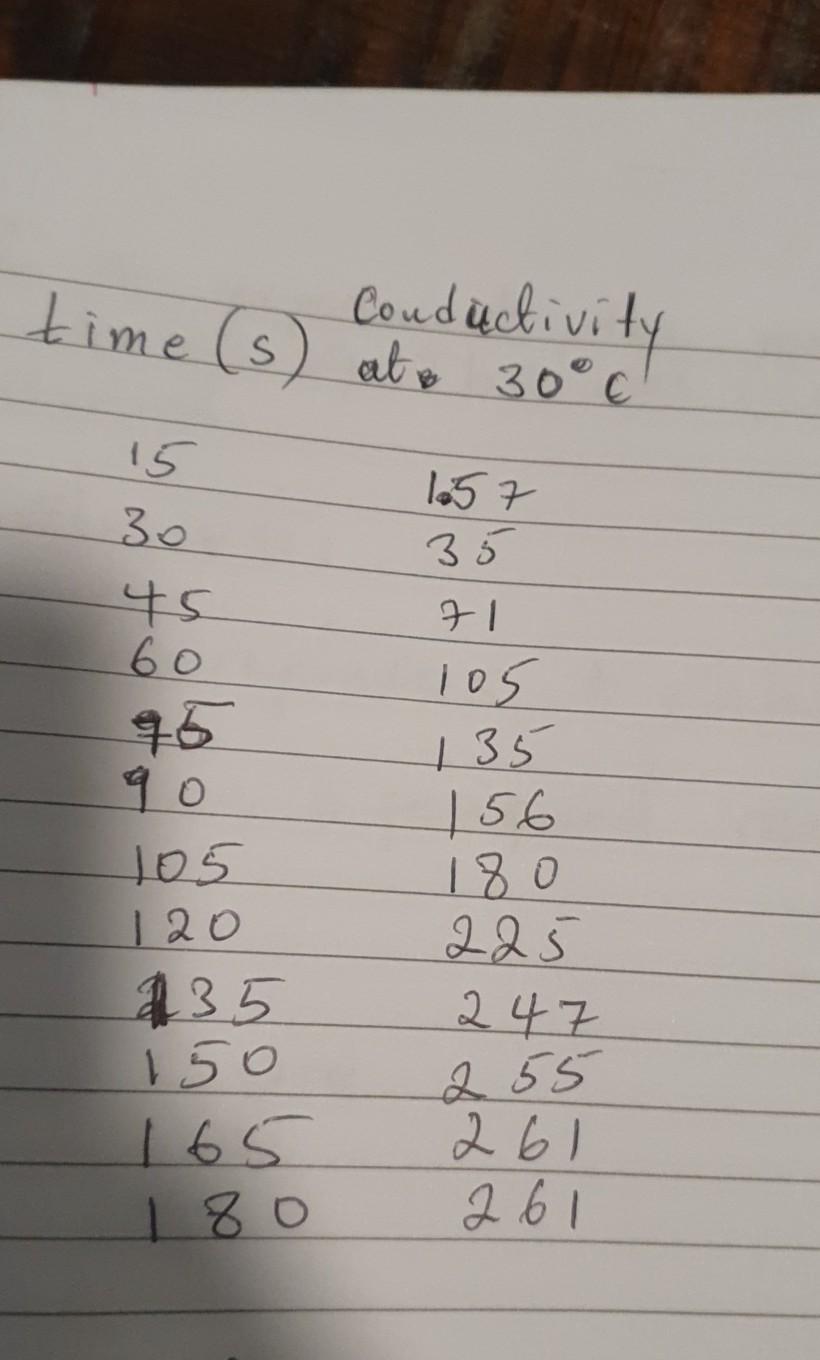 time (s) Conductivity at 30°C
15 1.57
30 35
45 71
60 105
75 135
90 156
105 180
120 225
135 247
150 255
165 261
180 261